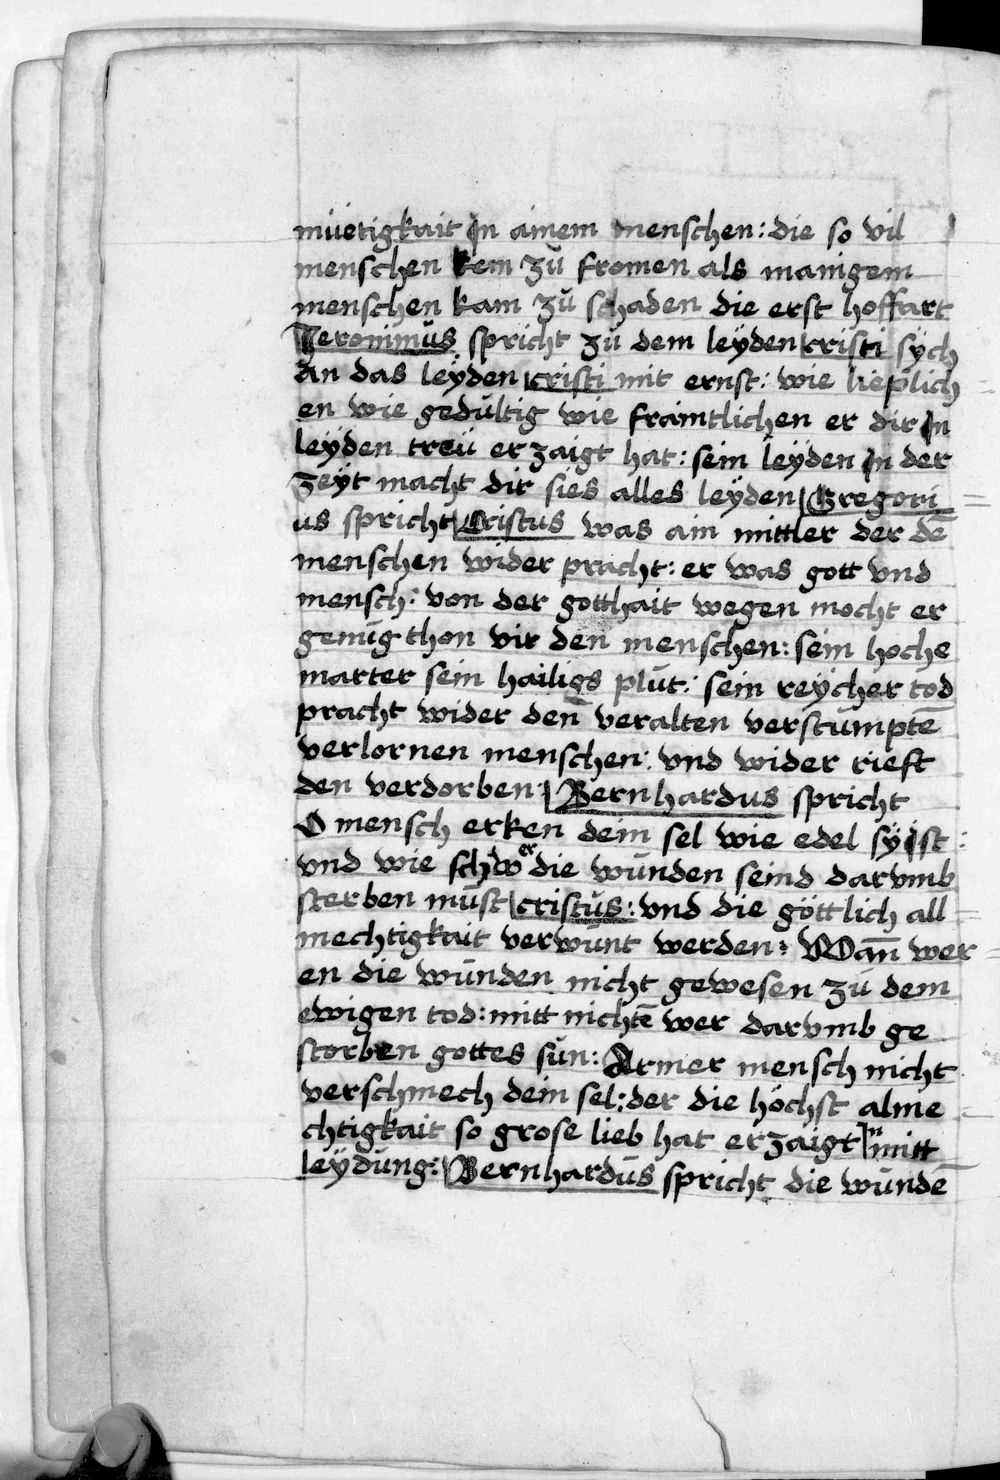 müetigkait Jn ainem menschen: die so vil
menschen kem zů fromen als manigem
menschen kam zů schaden die erst hoffart
Jeronimůs spricht zů dem leyden cristi sych
an das leyden cristi mit ernst: wie lieplich
en wie gedůltig wie fraintlichen er dir Jn
leyden treü erzaigt hat: sein leyden Jn der
zeyt macht dir sies alles leyden Gregori
us spricht Cristus was ain mittler der dē
menschen wider pracht: er was gott vnd
mensch: von der gotthait wegen mocht er
genůg thon vir den menschen: sein hoche
marter sein hailigs plůt: sein reycher tod
pracht wider den veralten verstumptē
verlornen menschen: vnd wider rieft
den verdorben: Bernhardus spricht
O mensch erken dein sel wie edel sy ist:
vnd wie schwer die wůnden seind darvmb
sterben můst cristůs: vnd die göttlich all
mechtigkait verwůnt werden: Wan̄ wer
en die wůnden nicht gewesen zů dem
ewigen tod: mitt nichtē wer darvmb ge
storben gottes sůn: Armer mensch nicht
verschmech dein sel: der die höchst alme
chtigkait so grose lieb hat erzaigt Jn mitt
leydůng: Bernhardůs spricht die wůndē